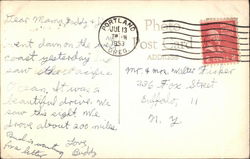 Dear Mama, Daddy &
went down on the
coast yesterday
saw the
Ocean. It was a
beautiful drive. We
saw the sight. We
drove about 200 miles.
Love
for a letter Buddy
PORTLAND
JUL 13
1953
OREG.
Photo
Post Card
ADDRESS
Mr. & Mrs. Walter
236 Fox Street
Buffalo, 11
N. Y.